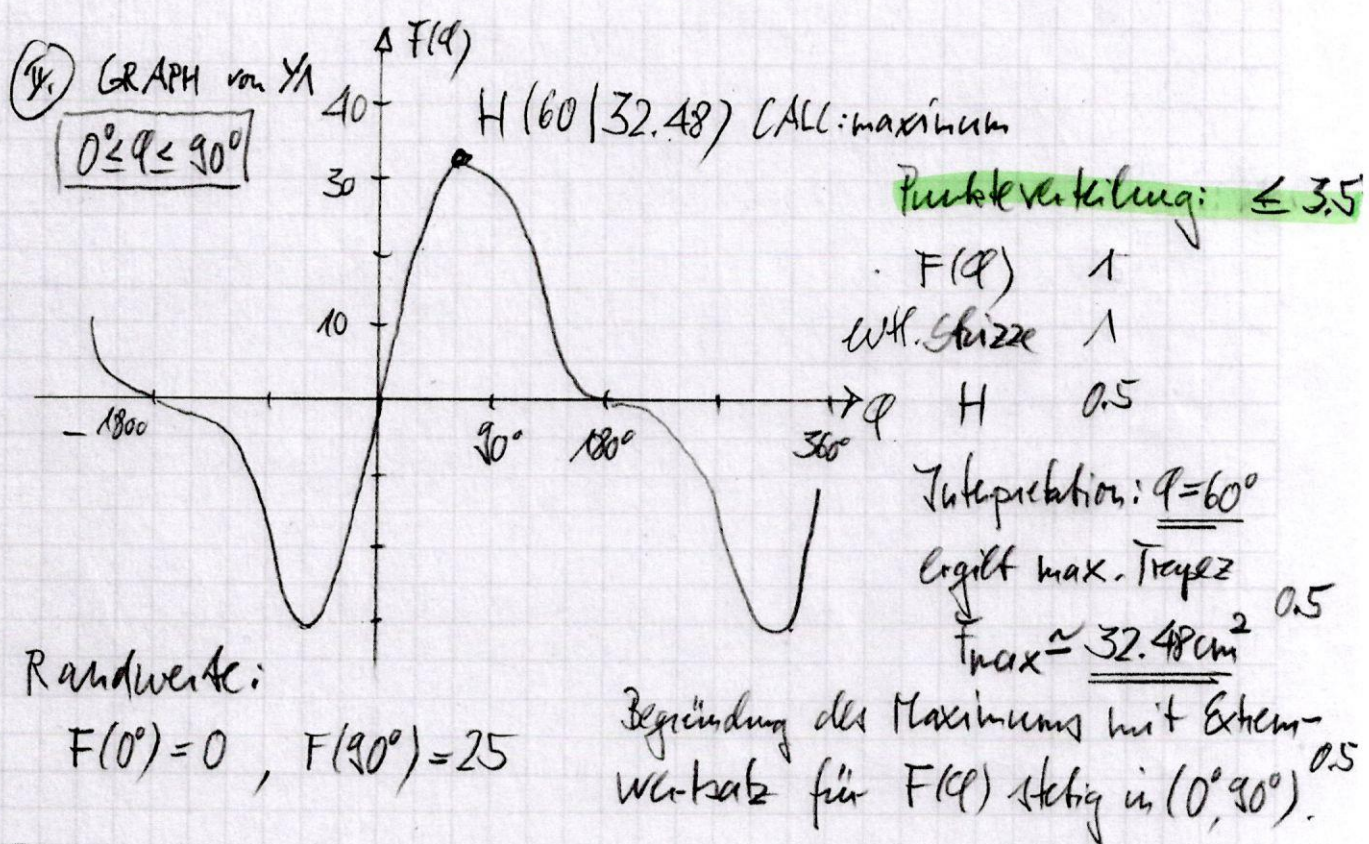 IV. GRAPH von Y1
0° ≤ φ ≤ 90°
F(φ)
40
30
10
H (60 | 32.48) CALC: maximum
-180°
90°
180°
360°
φ
Punkteverteilung: ≤ 3.5
F(φ) 1
evtl. Skizze 1
H 0.5
Interpretation: φ = 60°
ergibt max. Trapez
Fmax ≃ 32.48 cm² 0.5
Randwerte:
F(0°) = 0 , F(90°) = 25
Begründung des Maximums mit Extrem-
wertsatz für F(φ) stetig in (0°, 90°). 0.5